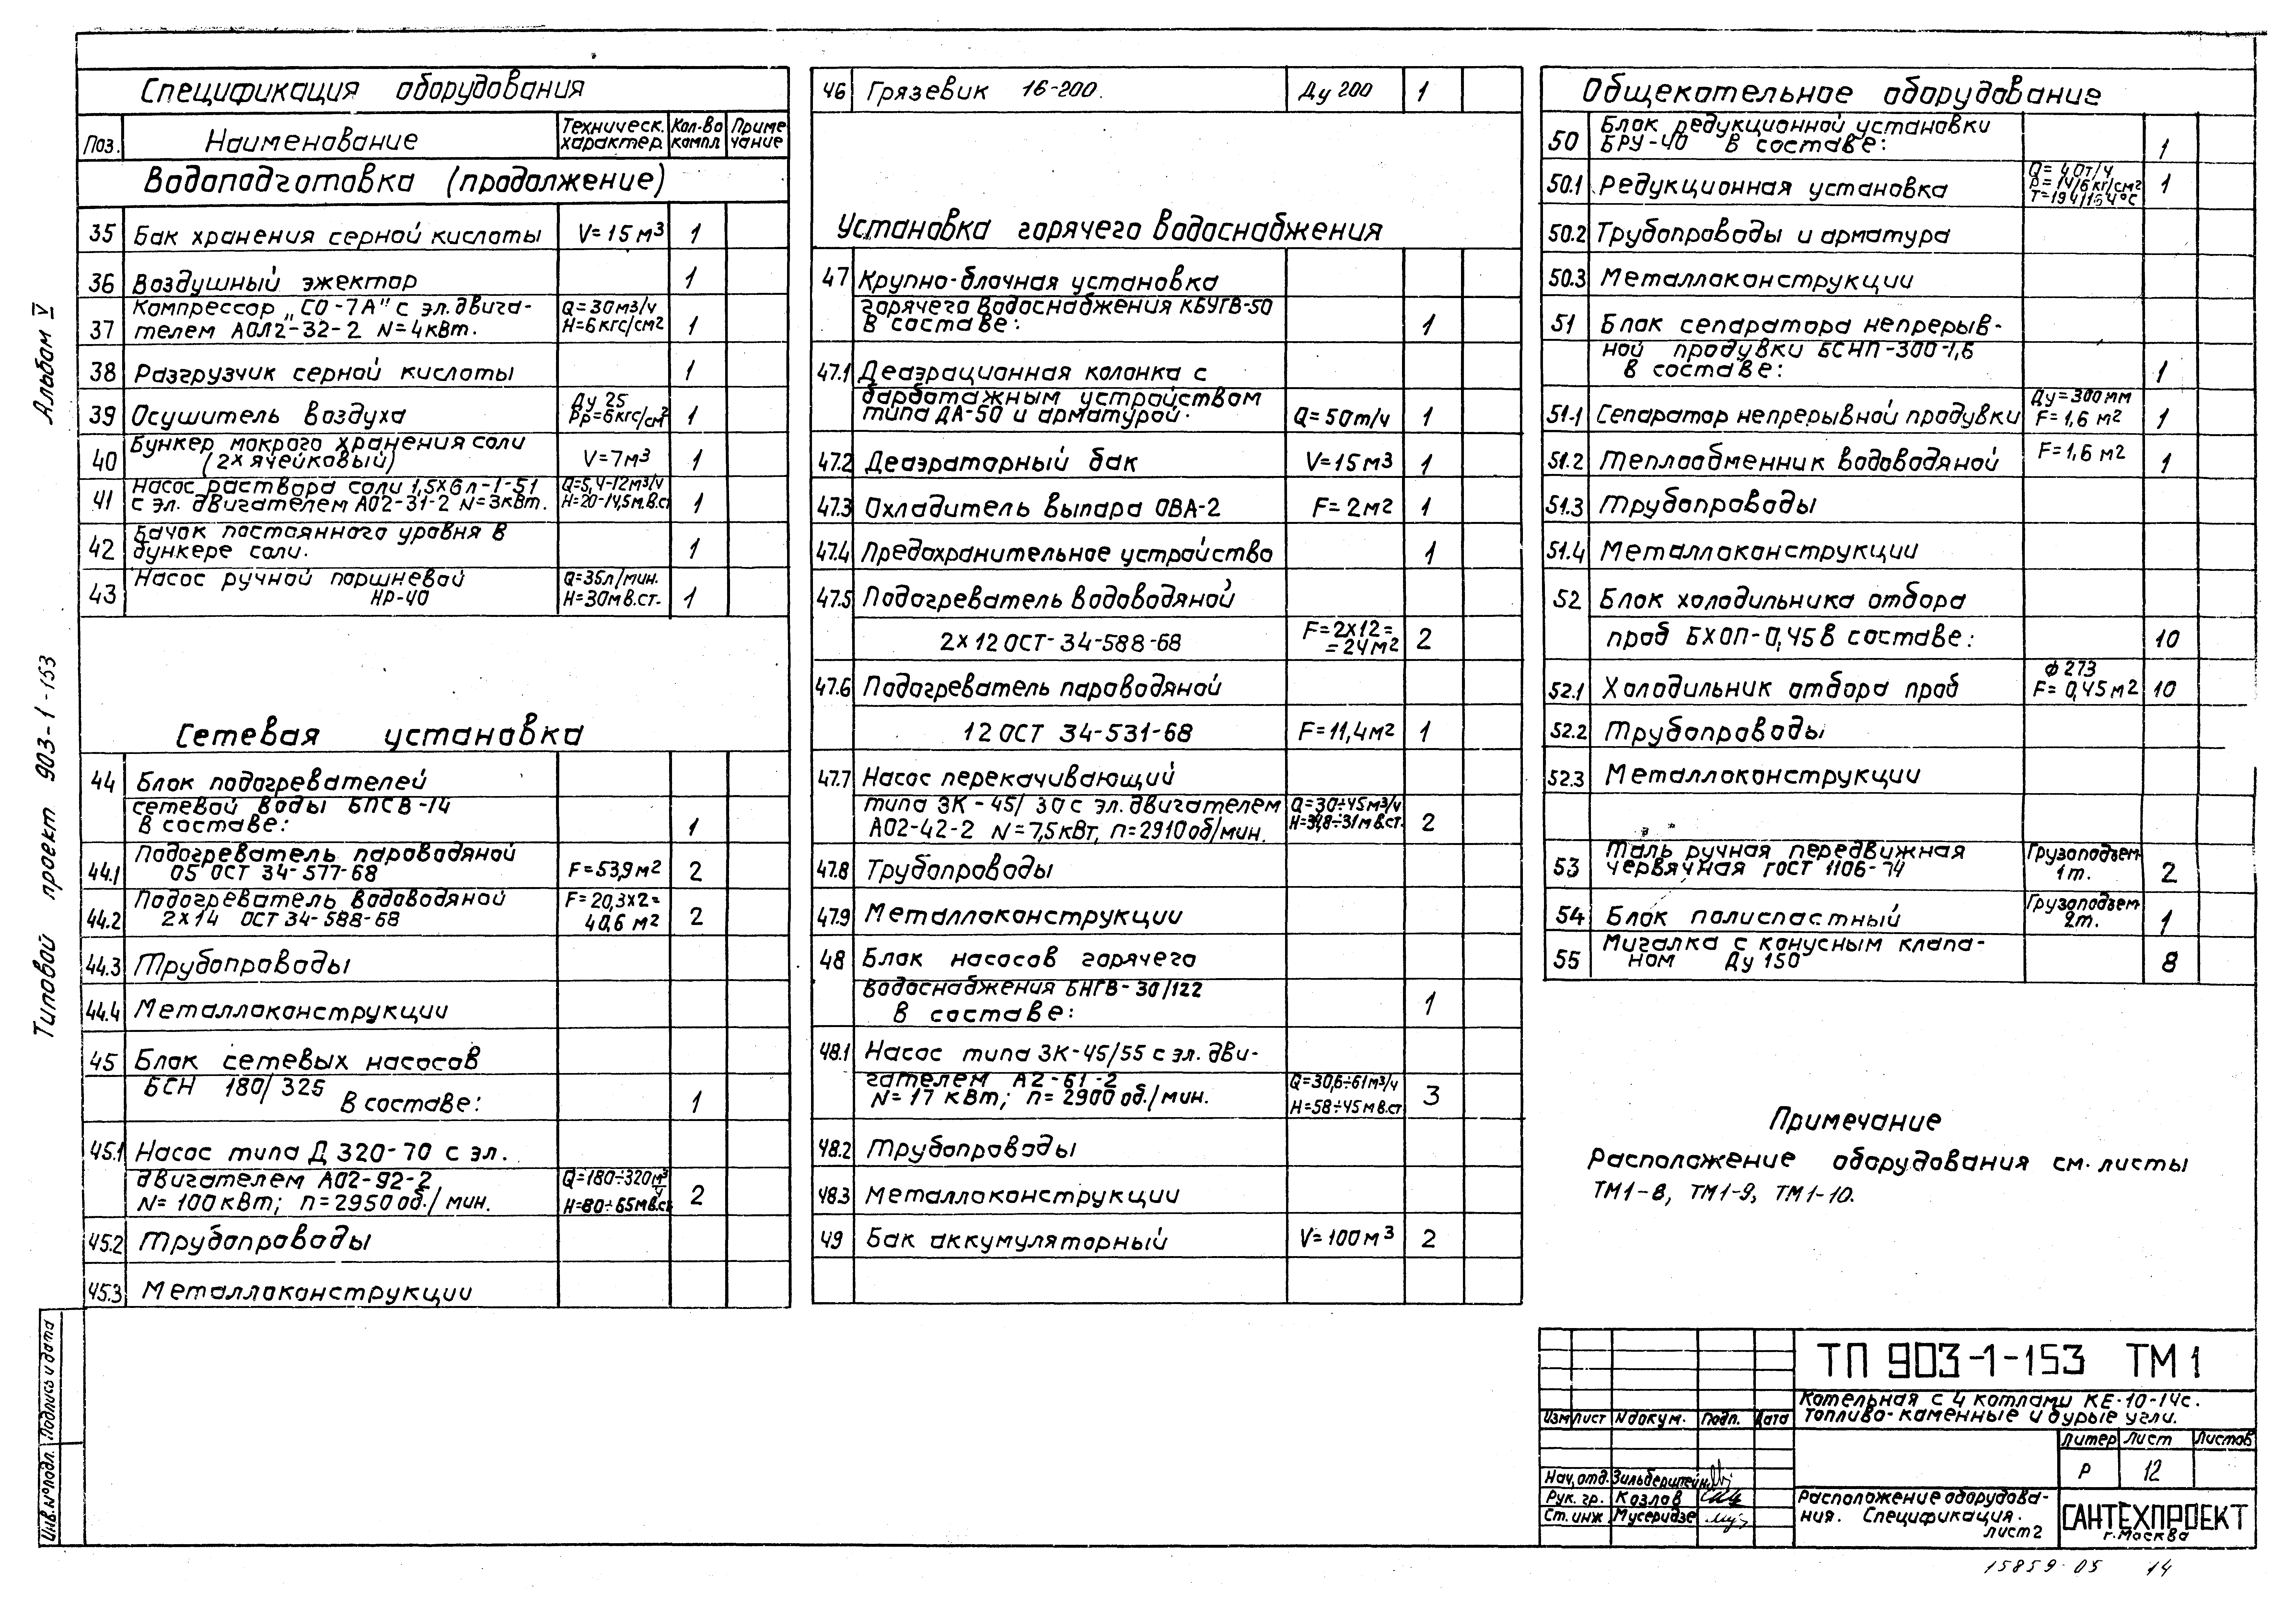 Альбом V
Типовой проект 903-1-153
Инв.№подл. Подпись и дата
Спецификация оборудования
Поз. Наименование Техническ. характер. Кол-во компл Приме чание
Водоподготовка (продолжение)
35 Бак хранения серной кислоты V=15м3 1
36 Воздушный эжектор 1
Компрессор „СО-7А" с эл.двига- Q=30м3/ч
37 телем АОЛ2-32-2 N=4кВт. Н=6кгс/см2 1
38 Разгрузчик серной кислоты 1
39 Осушитель воздуха Ду 25 Рр=6кгс/см2 1
Бункер мокрого хранения соли
40 (2х ячейковый) V=7м3 1
Насос раствора соли 1,5х6л-1-51 Q=5,4-12м3/ч
41 с эл. двигателем АО2-31-2 N=3кВт. Н=20-14,5м.в.ст 1
Бачок постоянного уровня в
42 бункере соли. 1
Насос ручной поршневой Q=35л/мин.
43 НР-40 Н=30мв.ст. 1
Сетевая установка
44 Блок подогревателей
сетевой воды БПСВ-14
в составе: 1
Подогреватель пароводяной
44.1 05 ОСТ 34-577-68 F=53,9м2 2
Подогреватель водоводяной F=20,3х2=
44.2 2х14 ОСТ 34-588-68 40,6 м2 2
44.3 Трубопроводы
44.4 Металлоконструкции
45 Блок сетевых насосов
БСН 180/325
в составе: 1
45.1 Насос типа Д 320-70 с эл.
двигателем АО2-92-2 Q=180÷320м3/ч
N=100кВт; n=2950об./мин. Н=80÷65мв.ст 2
45.2 Трубопроводы
45.3 Металлоконструкции
46 Грязевик 16-200. Ду 200 1
Установка горячего водоснабжения
47 Крупно-блочная установка
горячего водоснабжения КБУГВ-50
в составе: 1
47.1 Деаэрационная колонка с
барботажным устройством
типа ДА-50 и арматурой. Q=50т/ч 1
47.2 Деаэраторный бак V=15м3 1
47.3 Охладитель выпара ОВА-2 F=2м2 1
47.4 Предохранительное устройство 1
47.5 Подогреватель водоводяной
2х12 ОСТ-34-588-68 F=2х12= =24м2 2
47.6 Подогреватель пароводяной
12 ОСТ 34-531-68 F=11,4м2 1
47.7 Насос перекачивающий
типа 3К-45/30 с эл.двигателем Q=30÷45м3/ч
АО2-42-2 N=7,5кВт, n=2910об/мин. Н=34,8÷31мв.ст. 2
47.8 Трубопроводы
47.9 Металлоконструкции
48 Блок насосов горячего
водоснабжения БНГВ-30/122
в составе: 1
48.1 Насос типа 3К-45/55 с эл. дви-
гателем А2-61-2 Q=30,6÷61м3/ч
N=17 кВт; n=2900об./мин. Н=58÷45мв.ст 3
48.2 Трубопроводы
48.3 Металлоконструкции
49 Бак аккумуляторный V=100м3 2
Общекотельное оборудование
Блок редукционной установки
50 БРУ-40 в составе: 1
50.1 Редукционная установка Q=40т/ч Р=14/6кг/см2 Т=194/164°С 1
50.2 Трубопроводы и арматура
50.3 Металлоконструкции
51 Блок сепаратора непрерыв-
ной продувки БСНП-300-1,6
в составе: 1
51.1 Сепаратор непрерывной продувки Ду=300мм F=1,6 м2 1
51.2 Теплообменник водоводяной F=1,6 м2 1
51.3 Трубопроводы
51.4 Металлоконструкции
52 Блок холодильника отбора
проб БХОП-0,45 в составе: 10
52.1 Холодильник отбора проб ф 273 F=0,45м2 10
52.2 Трубопроводы
52.3 Металлоконструкции
Таль ручная передвижная Грузоподъем
53 червячная ГОСТ 1106-74 1т. 2
54 Блок полиспастный Грузоподъем 2т. 1
Мигалка с конусным клапа-
55 ном Ду 150 8
Примечание
Расположение оборудования см. листы
ТМ1-8, ТМ1-9, ТМ1-10.
ТП 903-1-153 ТМ1
Котельная с 4 котлами КЕ-10-14с.
Топливо-каменные и бурые угли.
Изм Лист Nдокум. Подп. Дата
Литер Лист Листов
Р 12
Нач.отд. Зильберштейн
Рук. гр. Козлов
Ст. инж Мусеридзе
Расположение оборудова-
ния. Спецификация.
лист2
САНТЕХПРОЕКТ
г.Москва
15859-05 14